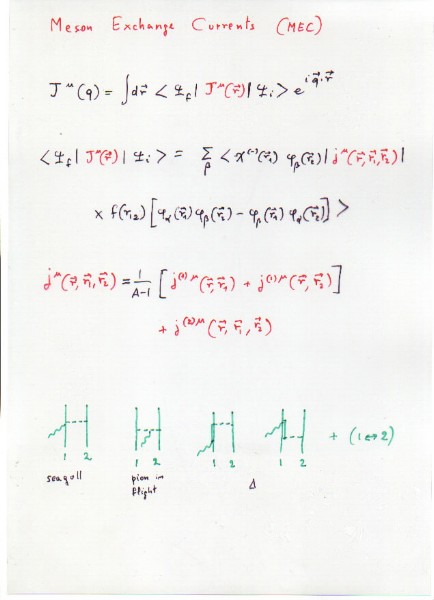 Meson Exchange Currents (MEC)
J^μ(q) = ∫dr⃗ <Ψ_f| J^μ(r⃗) |Ψ_i> e^{i q⃗·r⃗}
<Ψ_f| J^μ(r⃗) |Ψ_i> = Σ_β <χ^(-)(r⃗₁) φ_β(r⃗₂) | j^μ(r⃗, r⃗₁, r⃗₂) |
× f(r₁₂) [φ_α(r⃗₁) φ_β(r⃗₂) - φ_β(r⃗₁) φ_α(r⃗₂)] >
j^μ(r⃗, r⃗₁, r⃗₂) = 1/(A-1) [ j^{(1)μ}(r⃗, r⃗₁) + j^{(1)μ}(r⃗, r⃗₂) ]
+ j^{(2)μ}(r⃗, r⃗₁, r⃗₂)
+ (1↔2)
1 2 1 2 1 2 1 2
seagull pion in Δ
flight